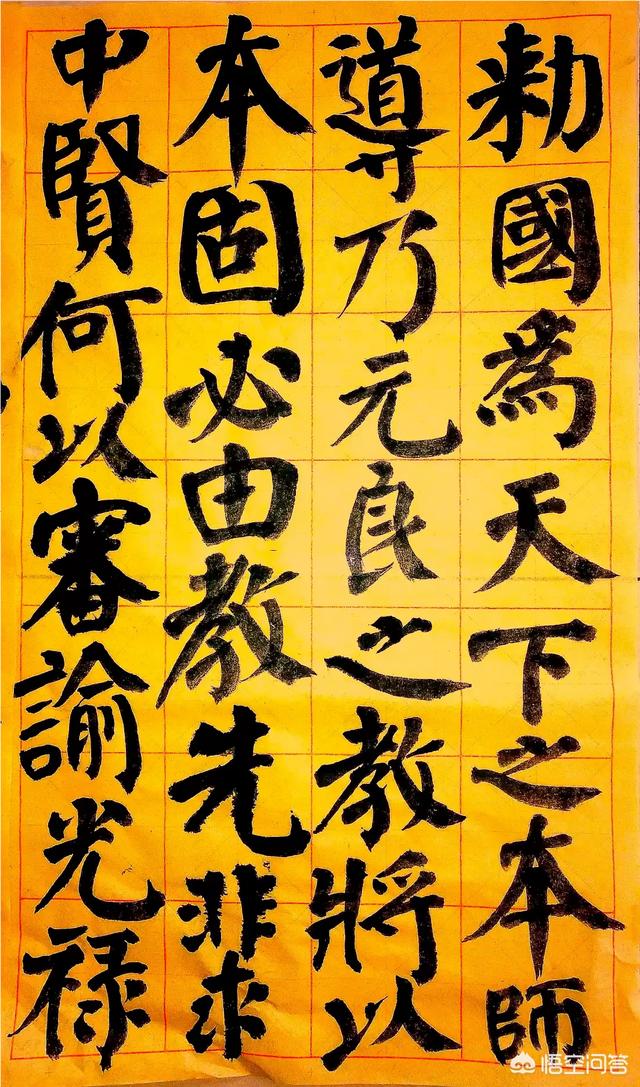 勅國為天下之本師
導乃元良之教將以
本固必由教先非求
中賢何以審諭光禄
悟空问答